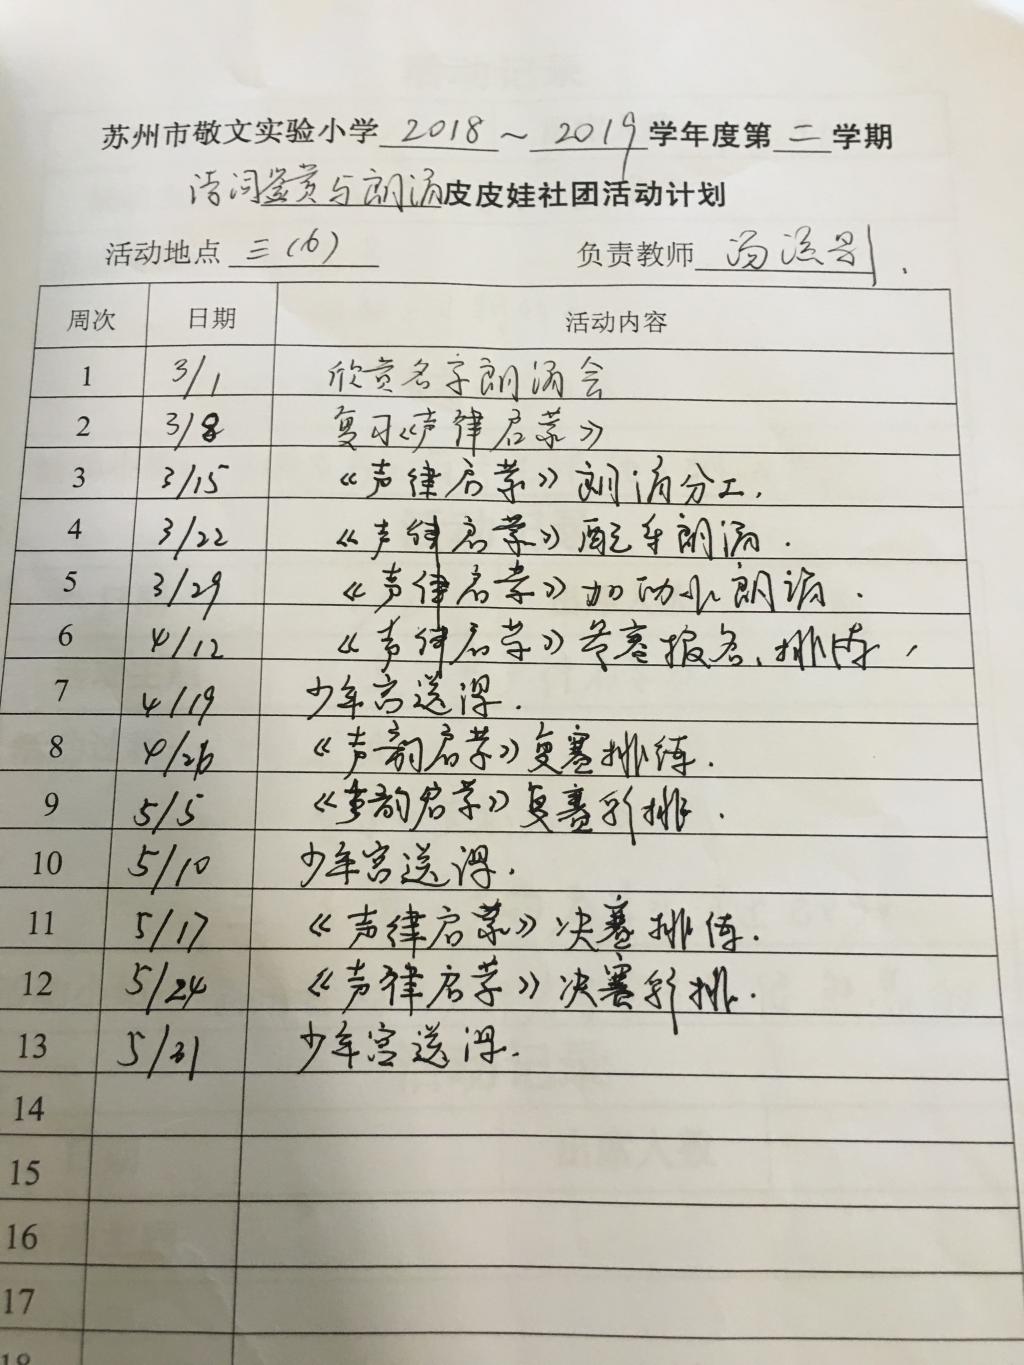 苏州市敬文实验小学 2018 ~ 2019 学年度第 二 学期
诗词鉴赏与朗诵 皮皮娃社团活动计划
活动地点 三(6) 负责教师 汤
周次 日期 活动内容
1 3/1 欣赏名家朗诵会
2 3/8 复习《声律启蒙》
3 3/15 《声律启蒙》朗诵分工.
4 3/22 《声律启蒙》配乐朗诵.
5 3/29 《声律启蒙》加动作朗诵.
6 4/12 《声律启蒙》参赛报名、排练,
7 4/19 少年宫送课.
8 4/26 《声韵启蒙》复赛排练.
9 5/5 《声韵启蒙》复赛彩排.
10 5/10 少年宫送课.
11 5/17 《声律启蒙》决赛排练.
12 5/24 《声律启蒙》决赛彩排.
13 5/31 少年宫送课.
14
15
16
17
18